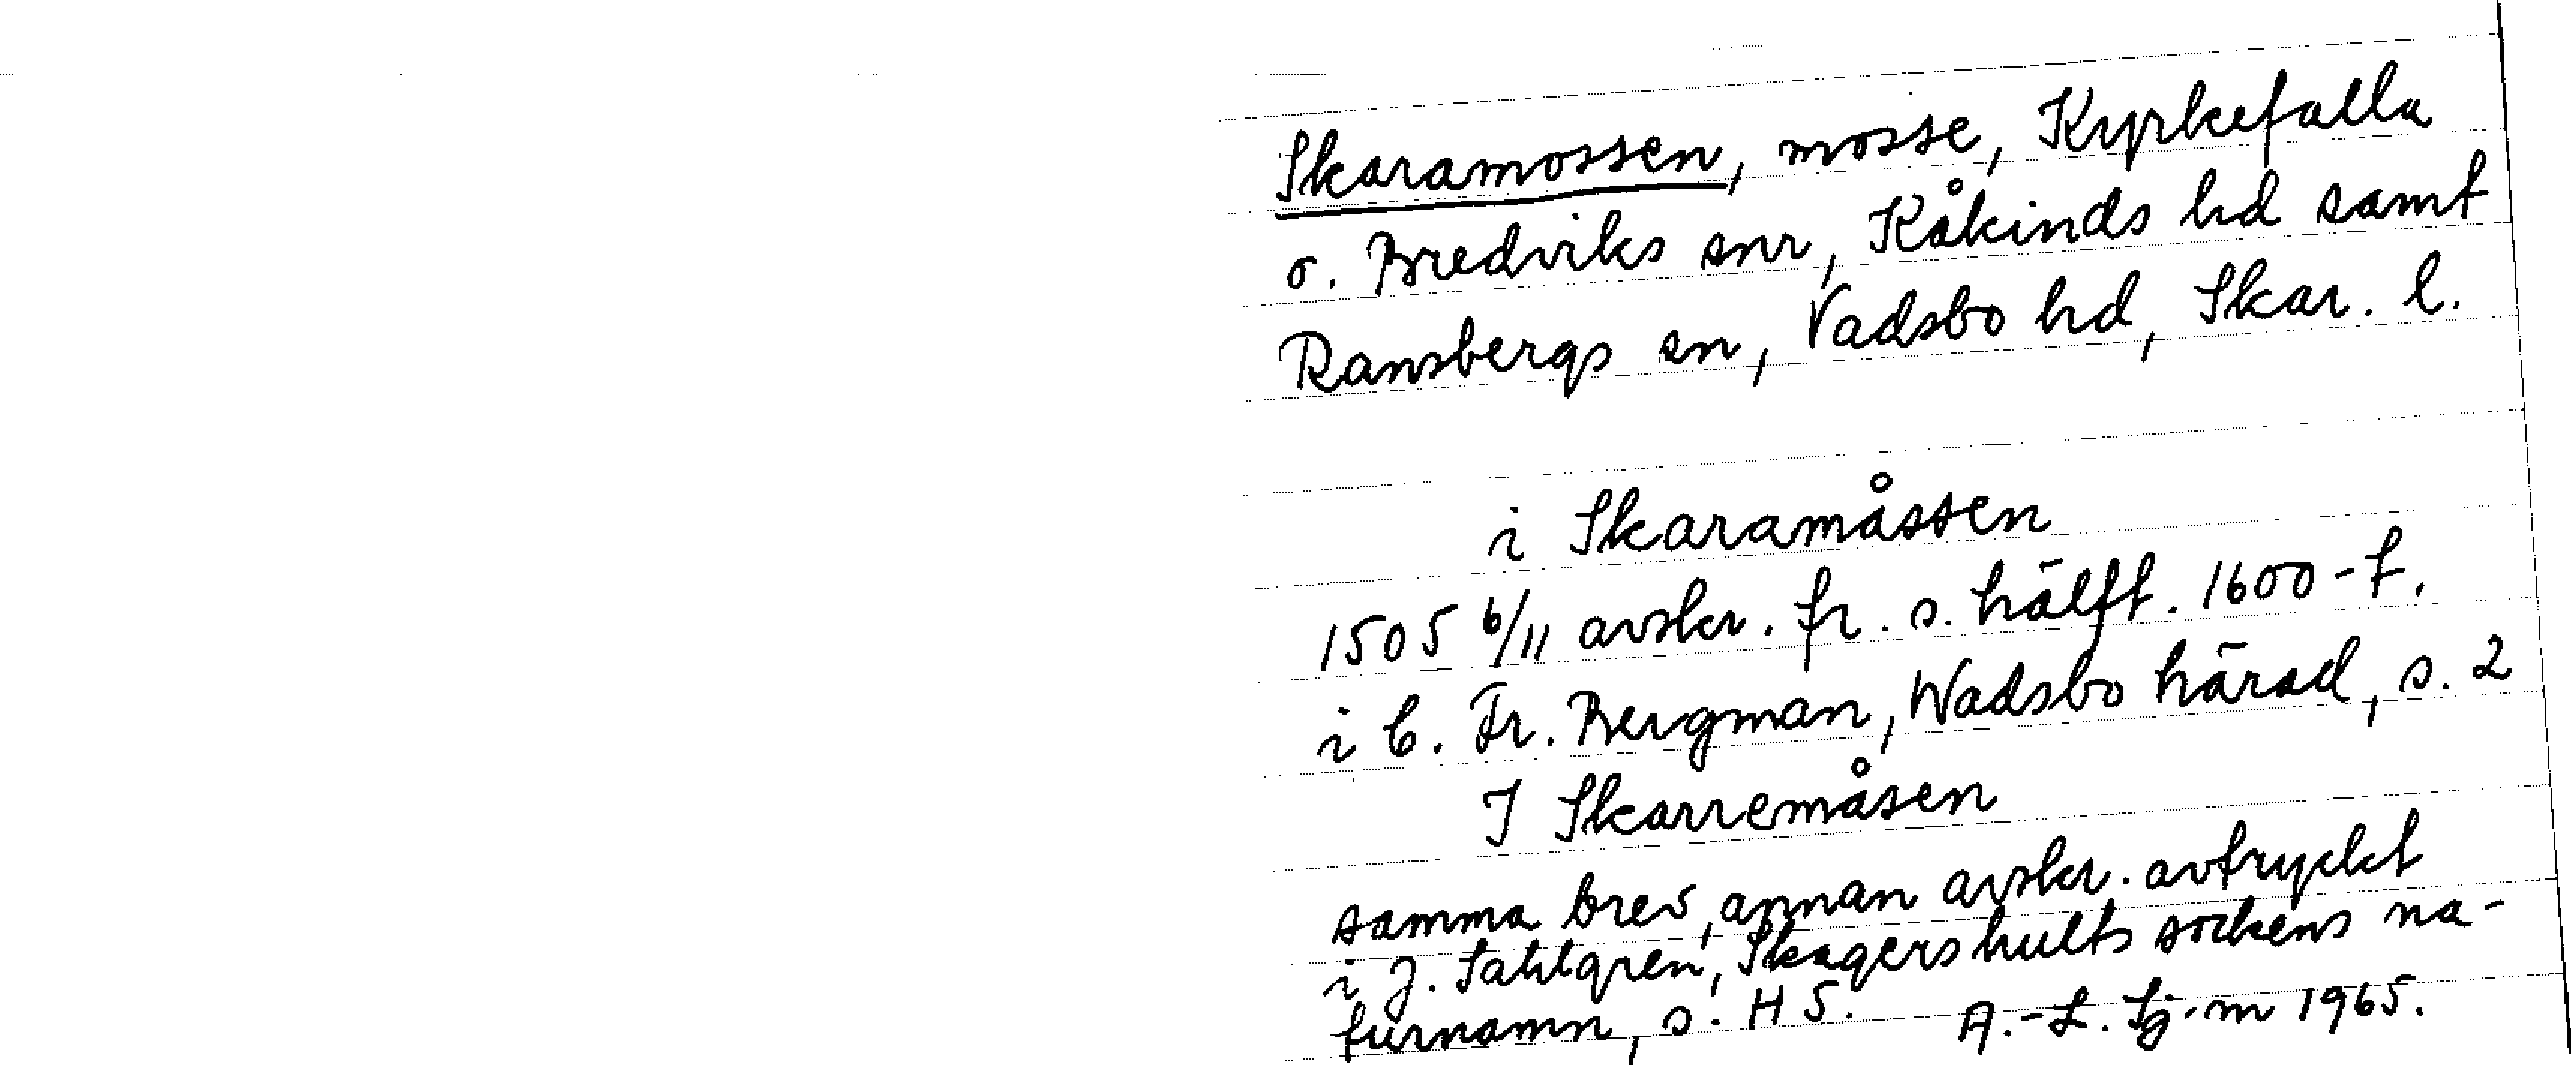 Skaramossen, mosse, Kyrkefalla
o. Bredviks snr, Kåkinds hd samt
Ransbergs sn, Vadsbo hd, Skar. l.
i Skaramåssen
1505 6/11 avskr. fr. s. hälft. 1600-t.
i C. Fr. Bergman, Wadsbo härad, s. 2
I Skarremåsen
samma brev, annan avskr. avtryckt
i J. Sahlgren, Skagershults sockens na-
turnamn, s. H 5. A.-L. Sj.m 1965.